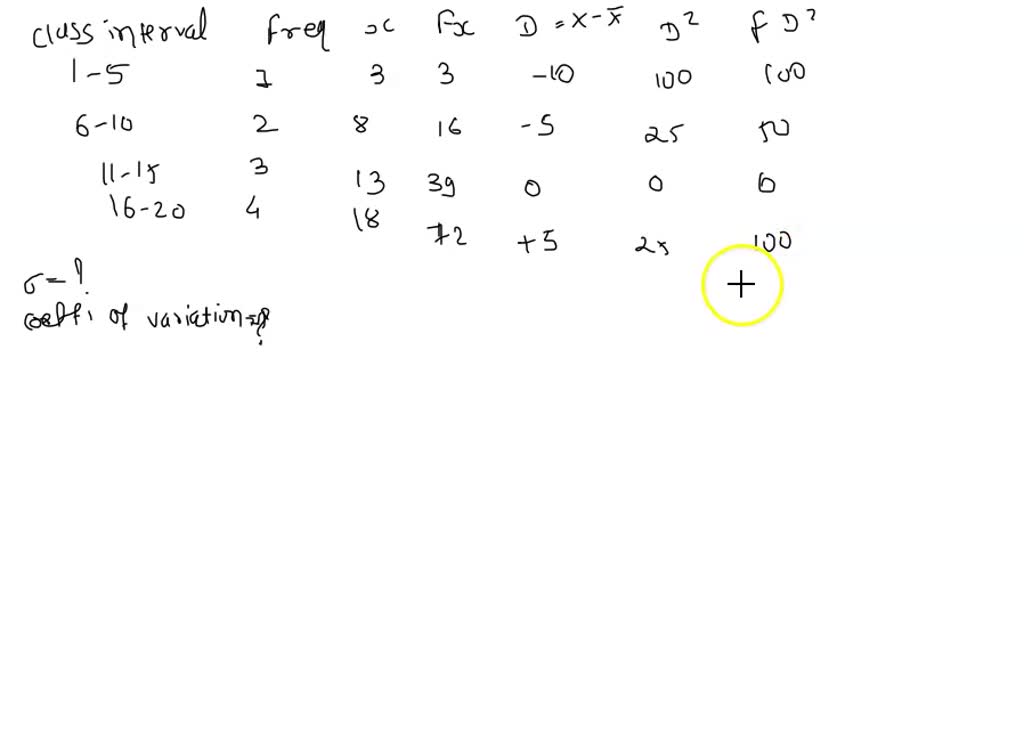 class interval freq x Fx D = x - x̄ D² f D²
1-5 1 3 3 -10 100 100
6-10 2 8 16 -5 25 50
11-15 3 13 39 0 0 0
16-20 4 18 72 +5 25 100
σ = ?
coeffi of variation = ?